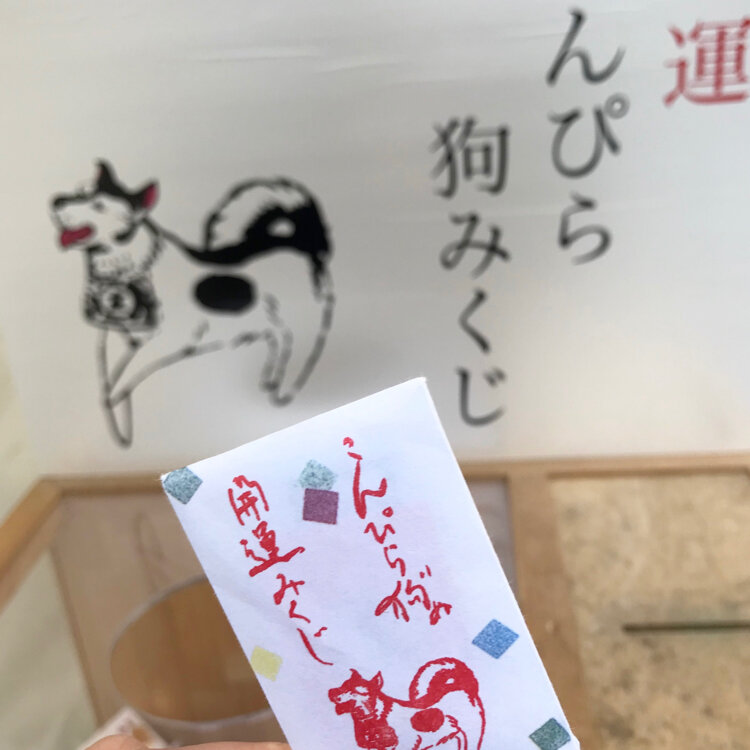 運
んぴら
狗みくじ
こんぴら狗の
開運みくじ